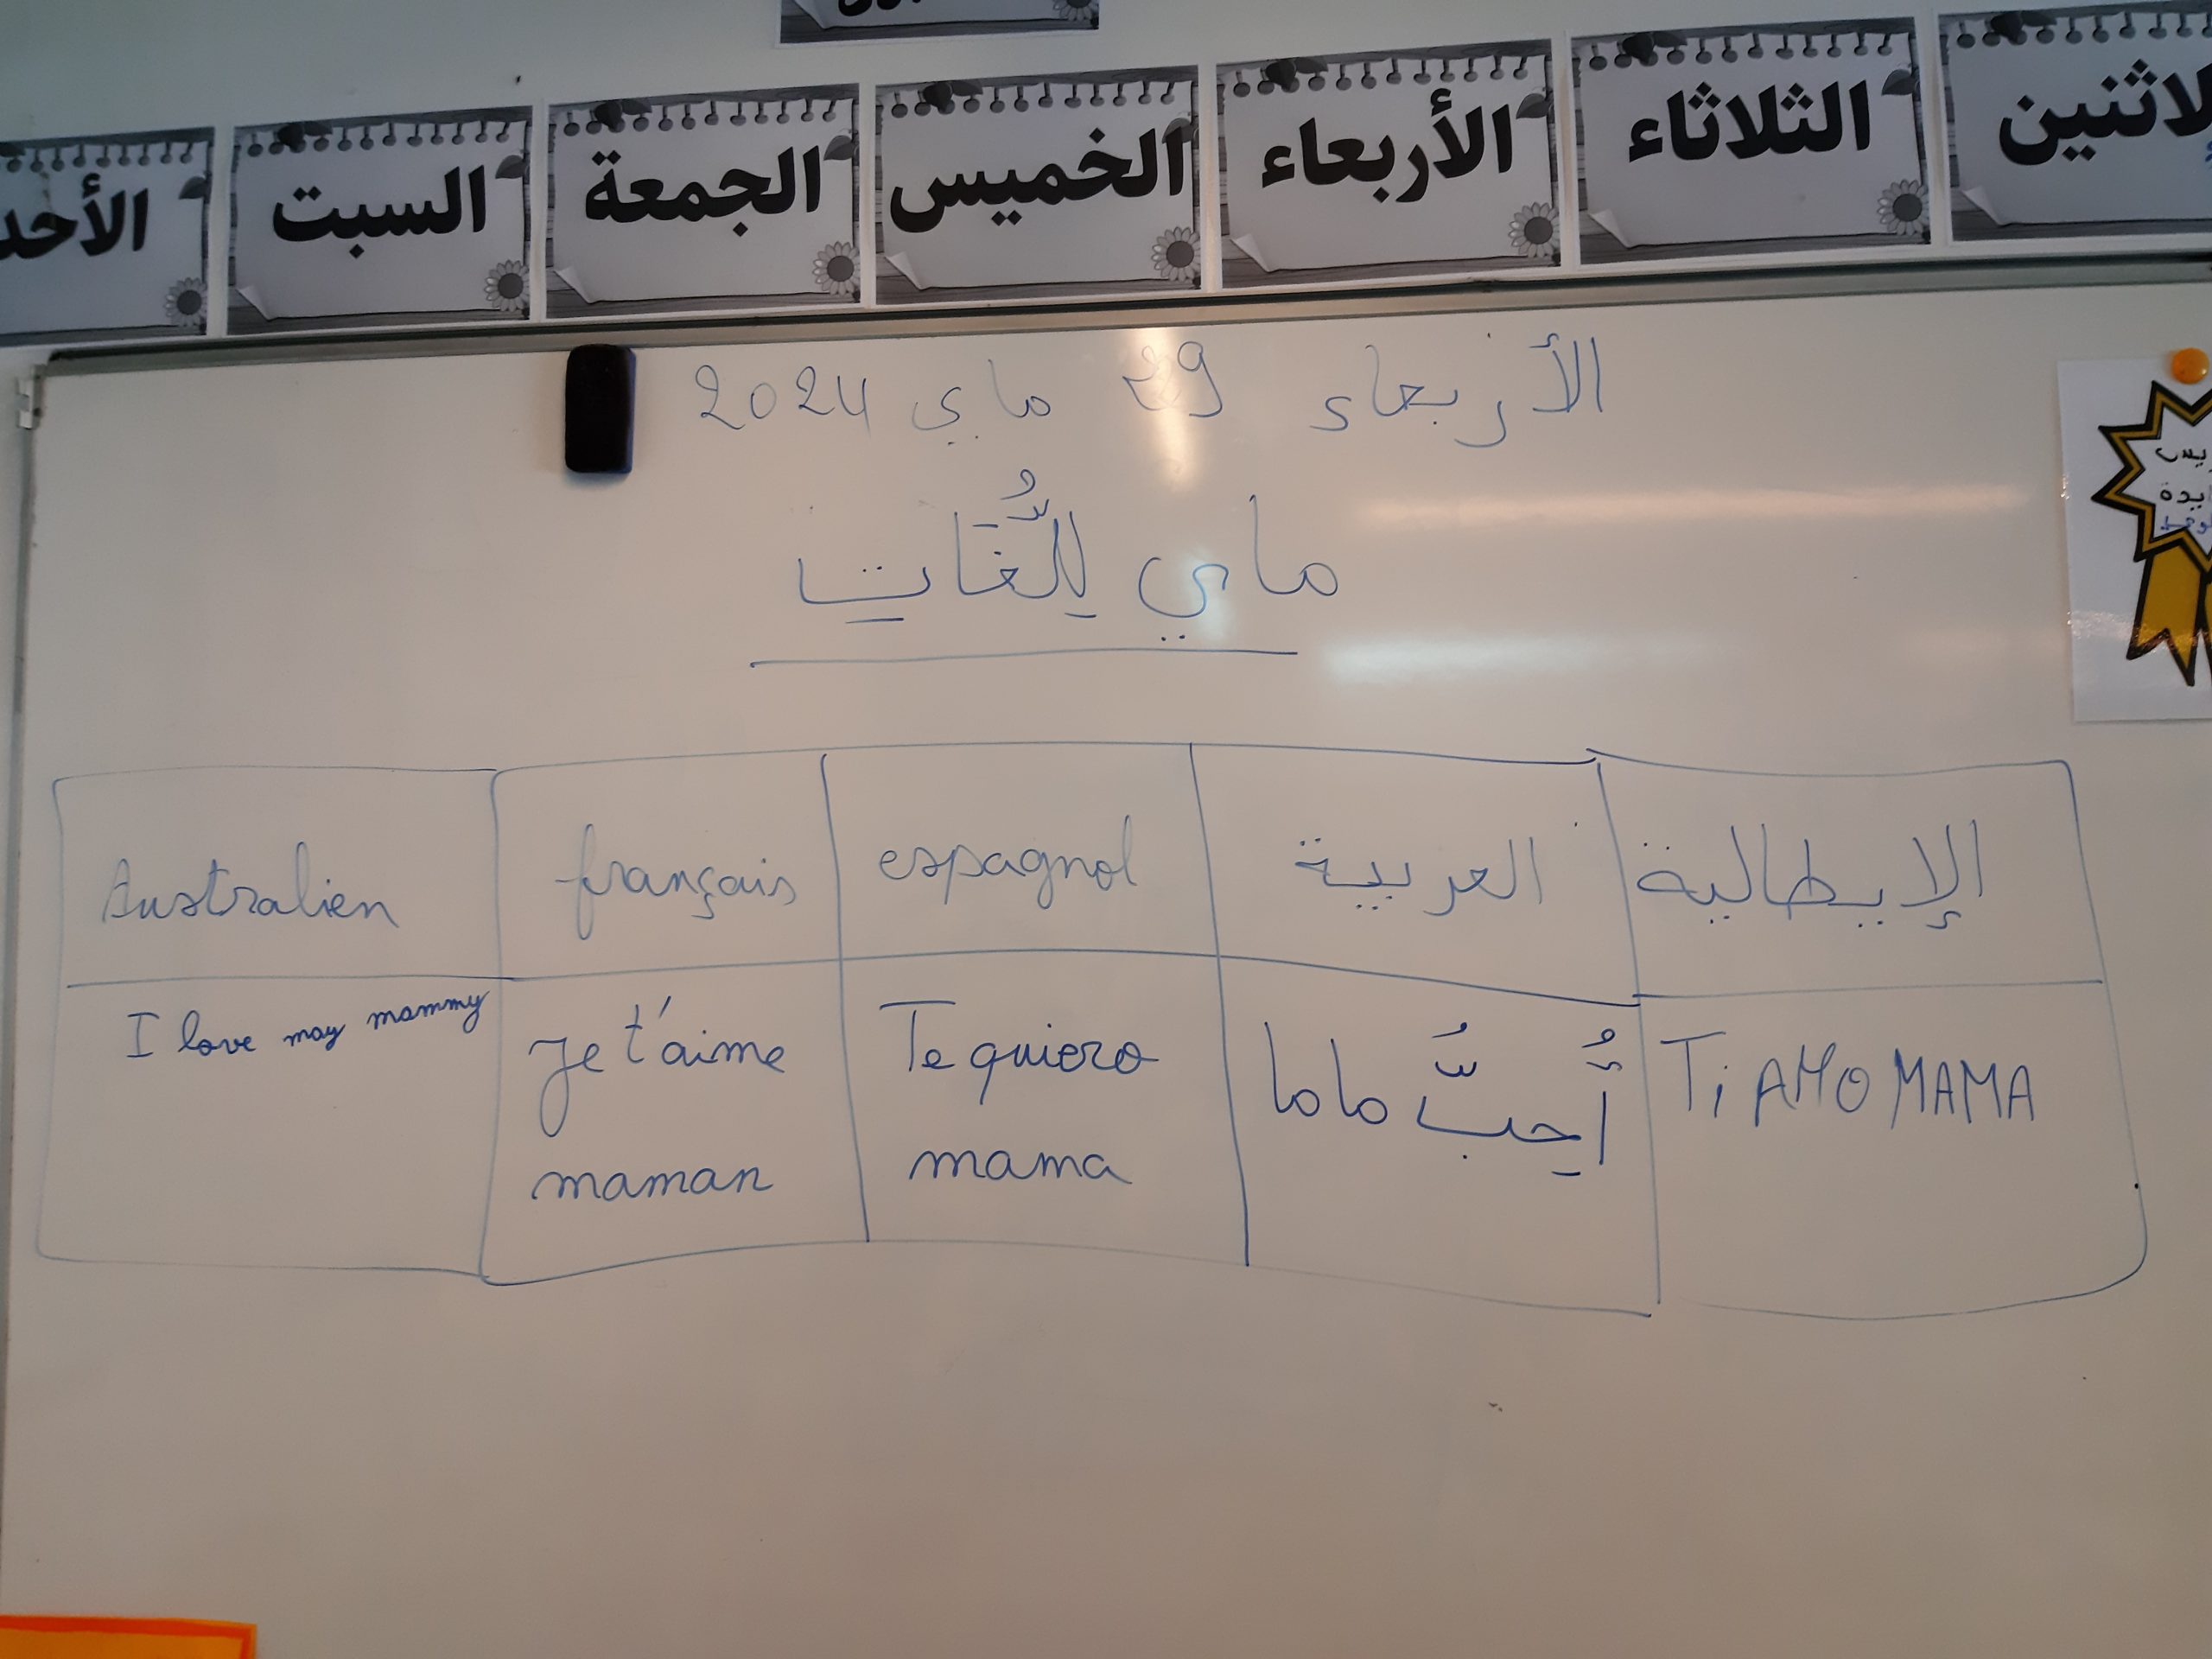 الاثنين
الثلاثاء
الأربعاء
الخميس
الجمعة
السبت
الأحد
الأربعاء 29 ماي 2024
ماي لِلُّغَاتِ
Australien
français
espagnol
العربية
الإيطالية
I love may mammy
Je t'aime
maman
Te quiero
mama
أُحِبُّ ماما
Ti AMO MAMA